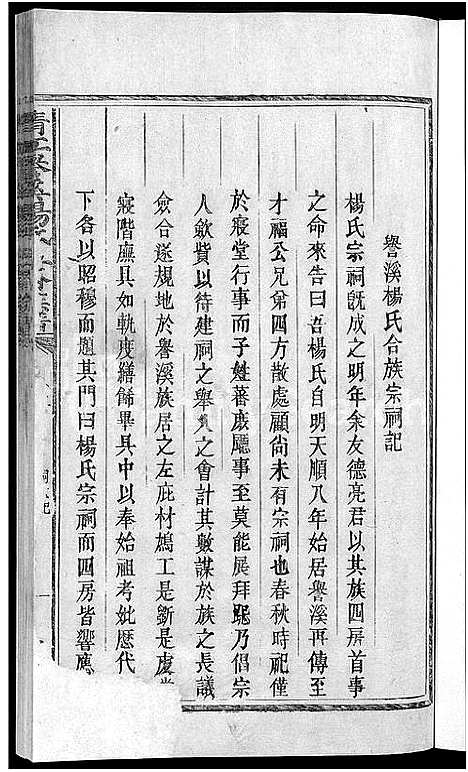 礐溪楊氏合族宗祠記
楊氏宗祠既成之明年余友德亮君以其族四房首事
之命來告曰吾楊氏自明天順八年始居礐溪再傳至
才福公兄弟四方散處顧尚未有宗祠也春秋時祀僅
於寢堂行事而子姓蕃廡廳事至莫能展拜觍乃倡宗
人斂貲以待建祠之舉久之會計其數謀於族之長議
僉合遂規地於礐溪族居之左庇材鳩工是斵是虔
寢階廡具如軌度繕餙畢具中以奉始祖考妣歷代
下各以昭穆而題其門曰楊氏宗祠而四房皆響應